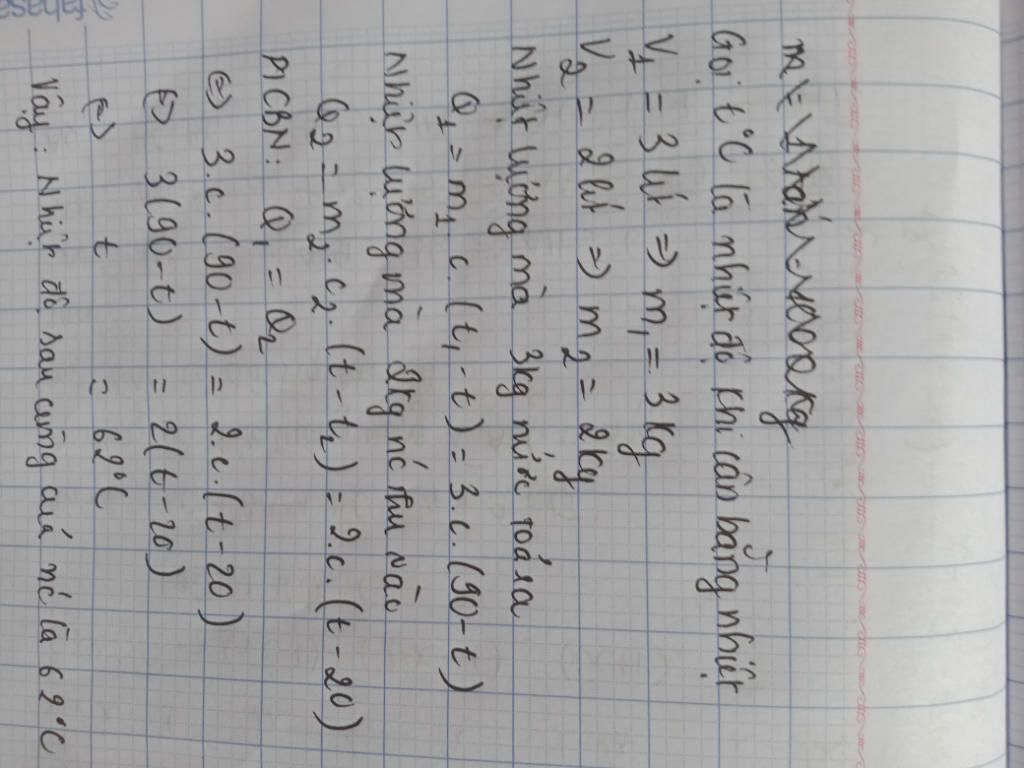 Gọi t°C là nhiệt độ khi cân bằng nhiệt
V1 = 3 lít => m1 = 3kg
V2 = 2 lít => m2 = 2kg
Nhiệt lượng mà 3kg nước toả ra
Q1 = m1.c.(t1-t) = 3.c.(90-t)
Nhiệt lượng mà 2kg nc thu vào
Q2 = m2.c2.(t-t2) = 2.c.(t-20)
PTCBN: Q1 = Q2
(=) 3.c.(90-t) = 2.c.(t-20)
(=) 3(90-t) = 2(t-20)
(=) t = 62°C
Vậy: Nhiệt độ sau cùng của nc là 62°C